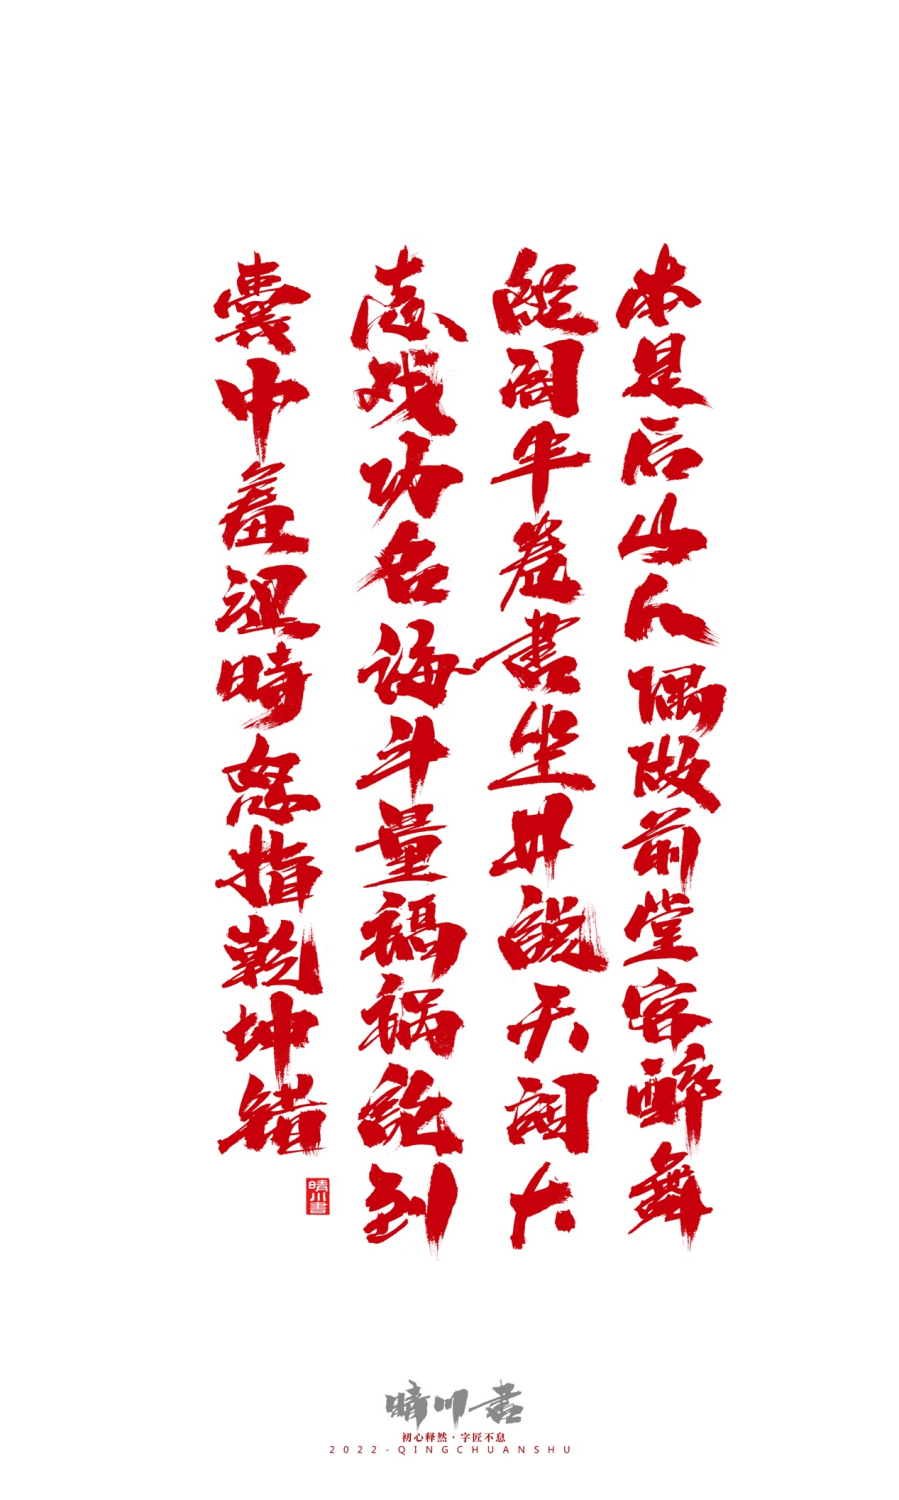 本是后山人偶做前堂客醉舞
經阁半卷書坐井說天阔大
志戏功名海斗量福祸論到
囊中羞涩時怒指乾坤錯
晴川書
晴川書
初心释然·字匠不息
2022-QINGCHUANSHU